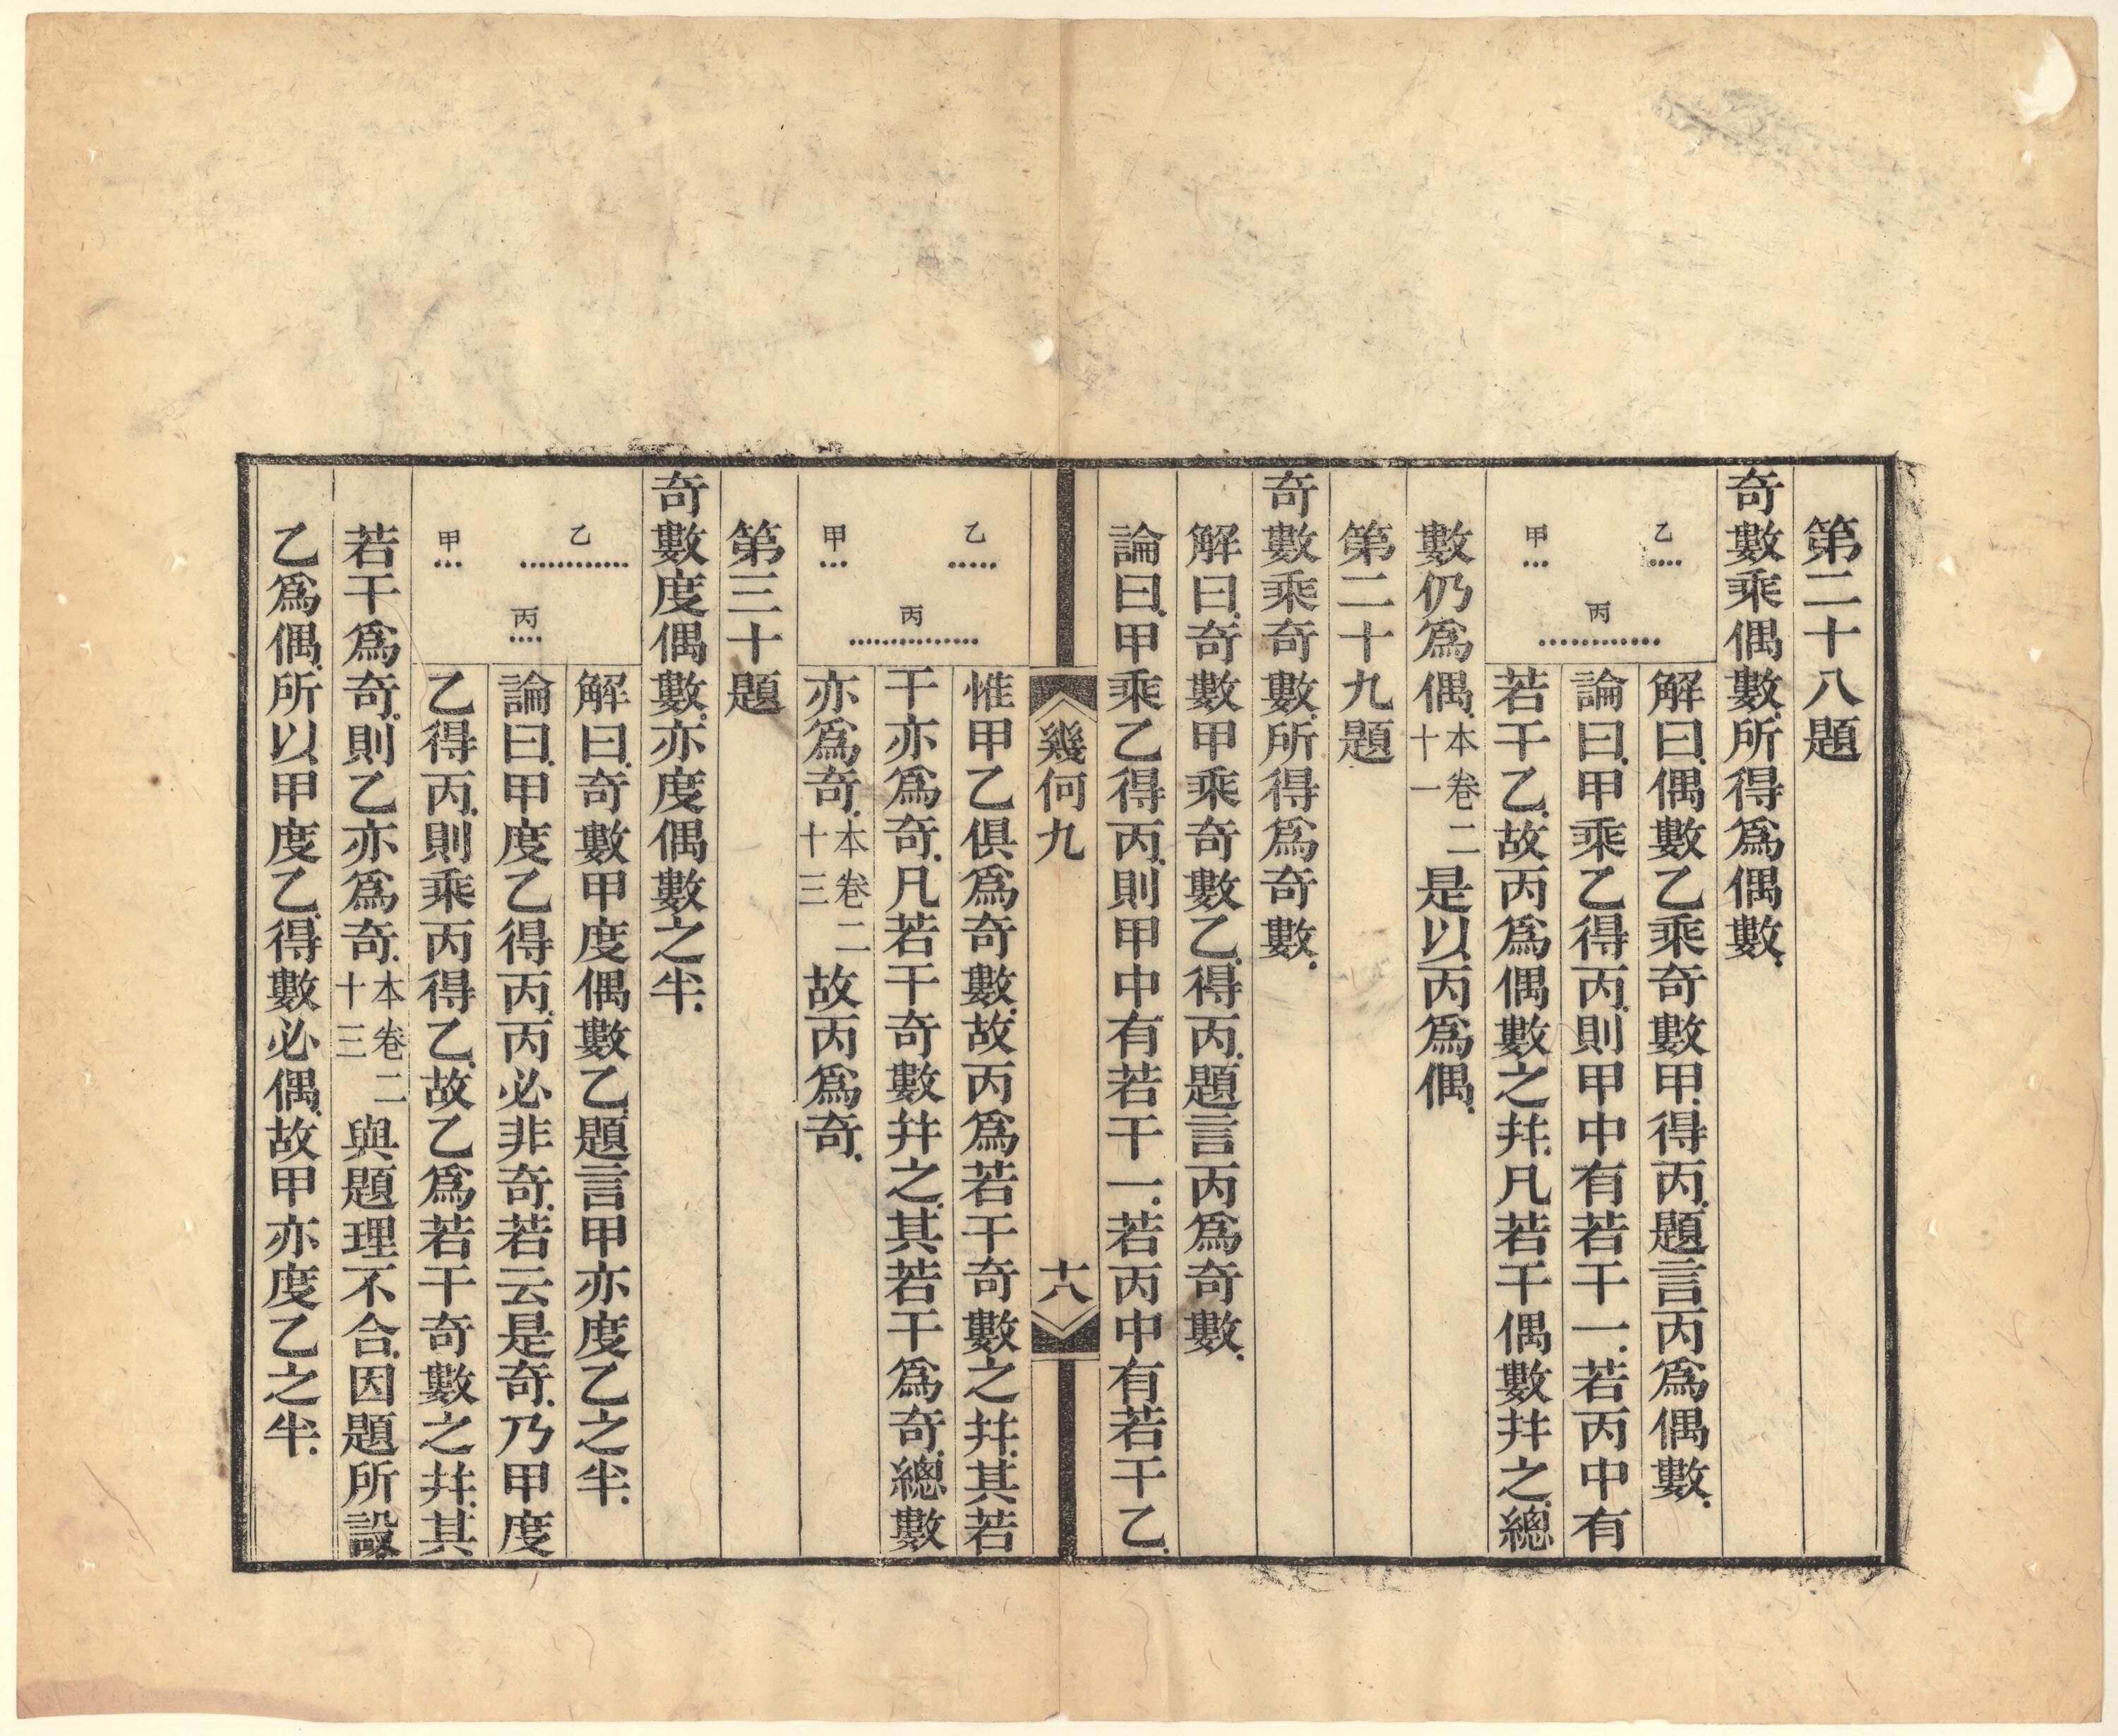 第二十八題
奇數乘偶數所得爲偶數
乙
甲
丙
解曰偶數乙乘奇數甲得丙題言丙爲偶數
論曰甲乘乙得丙則甲中有若干一若丙中有
若干乙故丙爲偶數之幷凡若干偶數幷之總
數仍爲偶本卷二十一是以丙爲偶
第二十九題
奇數乘奇數所得爲奇數
解曰奇數甲乘奇數乙得丙題言丙爲奇數
論曰甲乘乙得丙則甲中有若干一若丙中有若干乙
幾何九
十八
乙
甲
丙
惟甲乙俱爲奇數故丙爲若干奇數之幷其若
干亦爲奇凡若干奇數幷之其若干爲奇總數
亦爲奇本卷二十三故丙爲奇
第三十題
奇數度偶數亦度偶數之半
乙
甲
丙
解曰奇數甲度偶數乙題言甲亦度乙之半
論曰甲度乙得丙丙必非奇若云是奇乃甲度
乙得丙則乘丙得乙故乙爲若干奇數之幷其
若干爲奇則乙亦爲奇本卷二十三與題理不合因題所設
乙爲偶所以甲度乙得數必偶故甲亦度乙之半